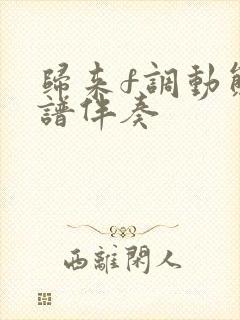 歸来f調動
譜伴奏
西離閑人